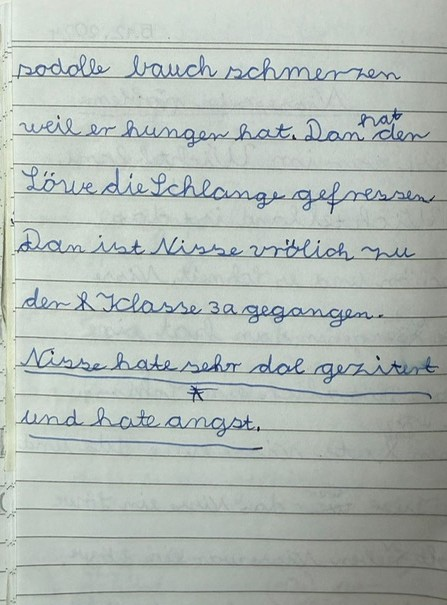 sodolle bauch schmerzen
weil er hungen hat. Dan hat den
Löwe die Schlange gefressen
Dan ist Nisse vrölich zu
der Klasse 3a gegangen.
Nisse hate sehr dal gezitert
*
und hate angst.